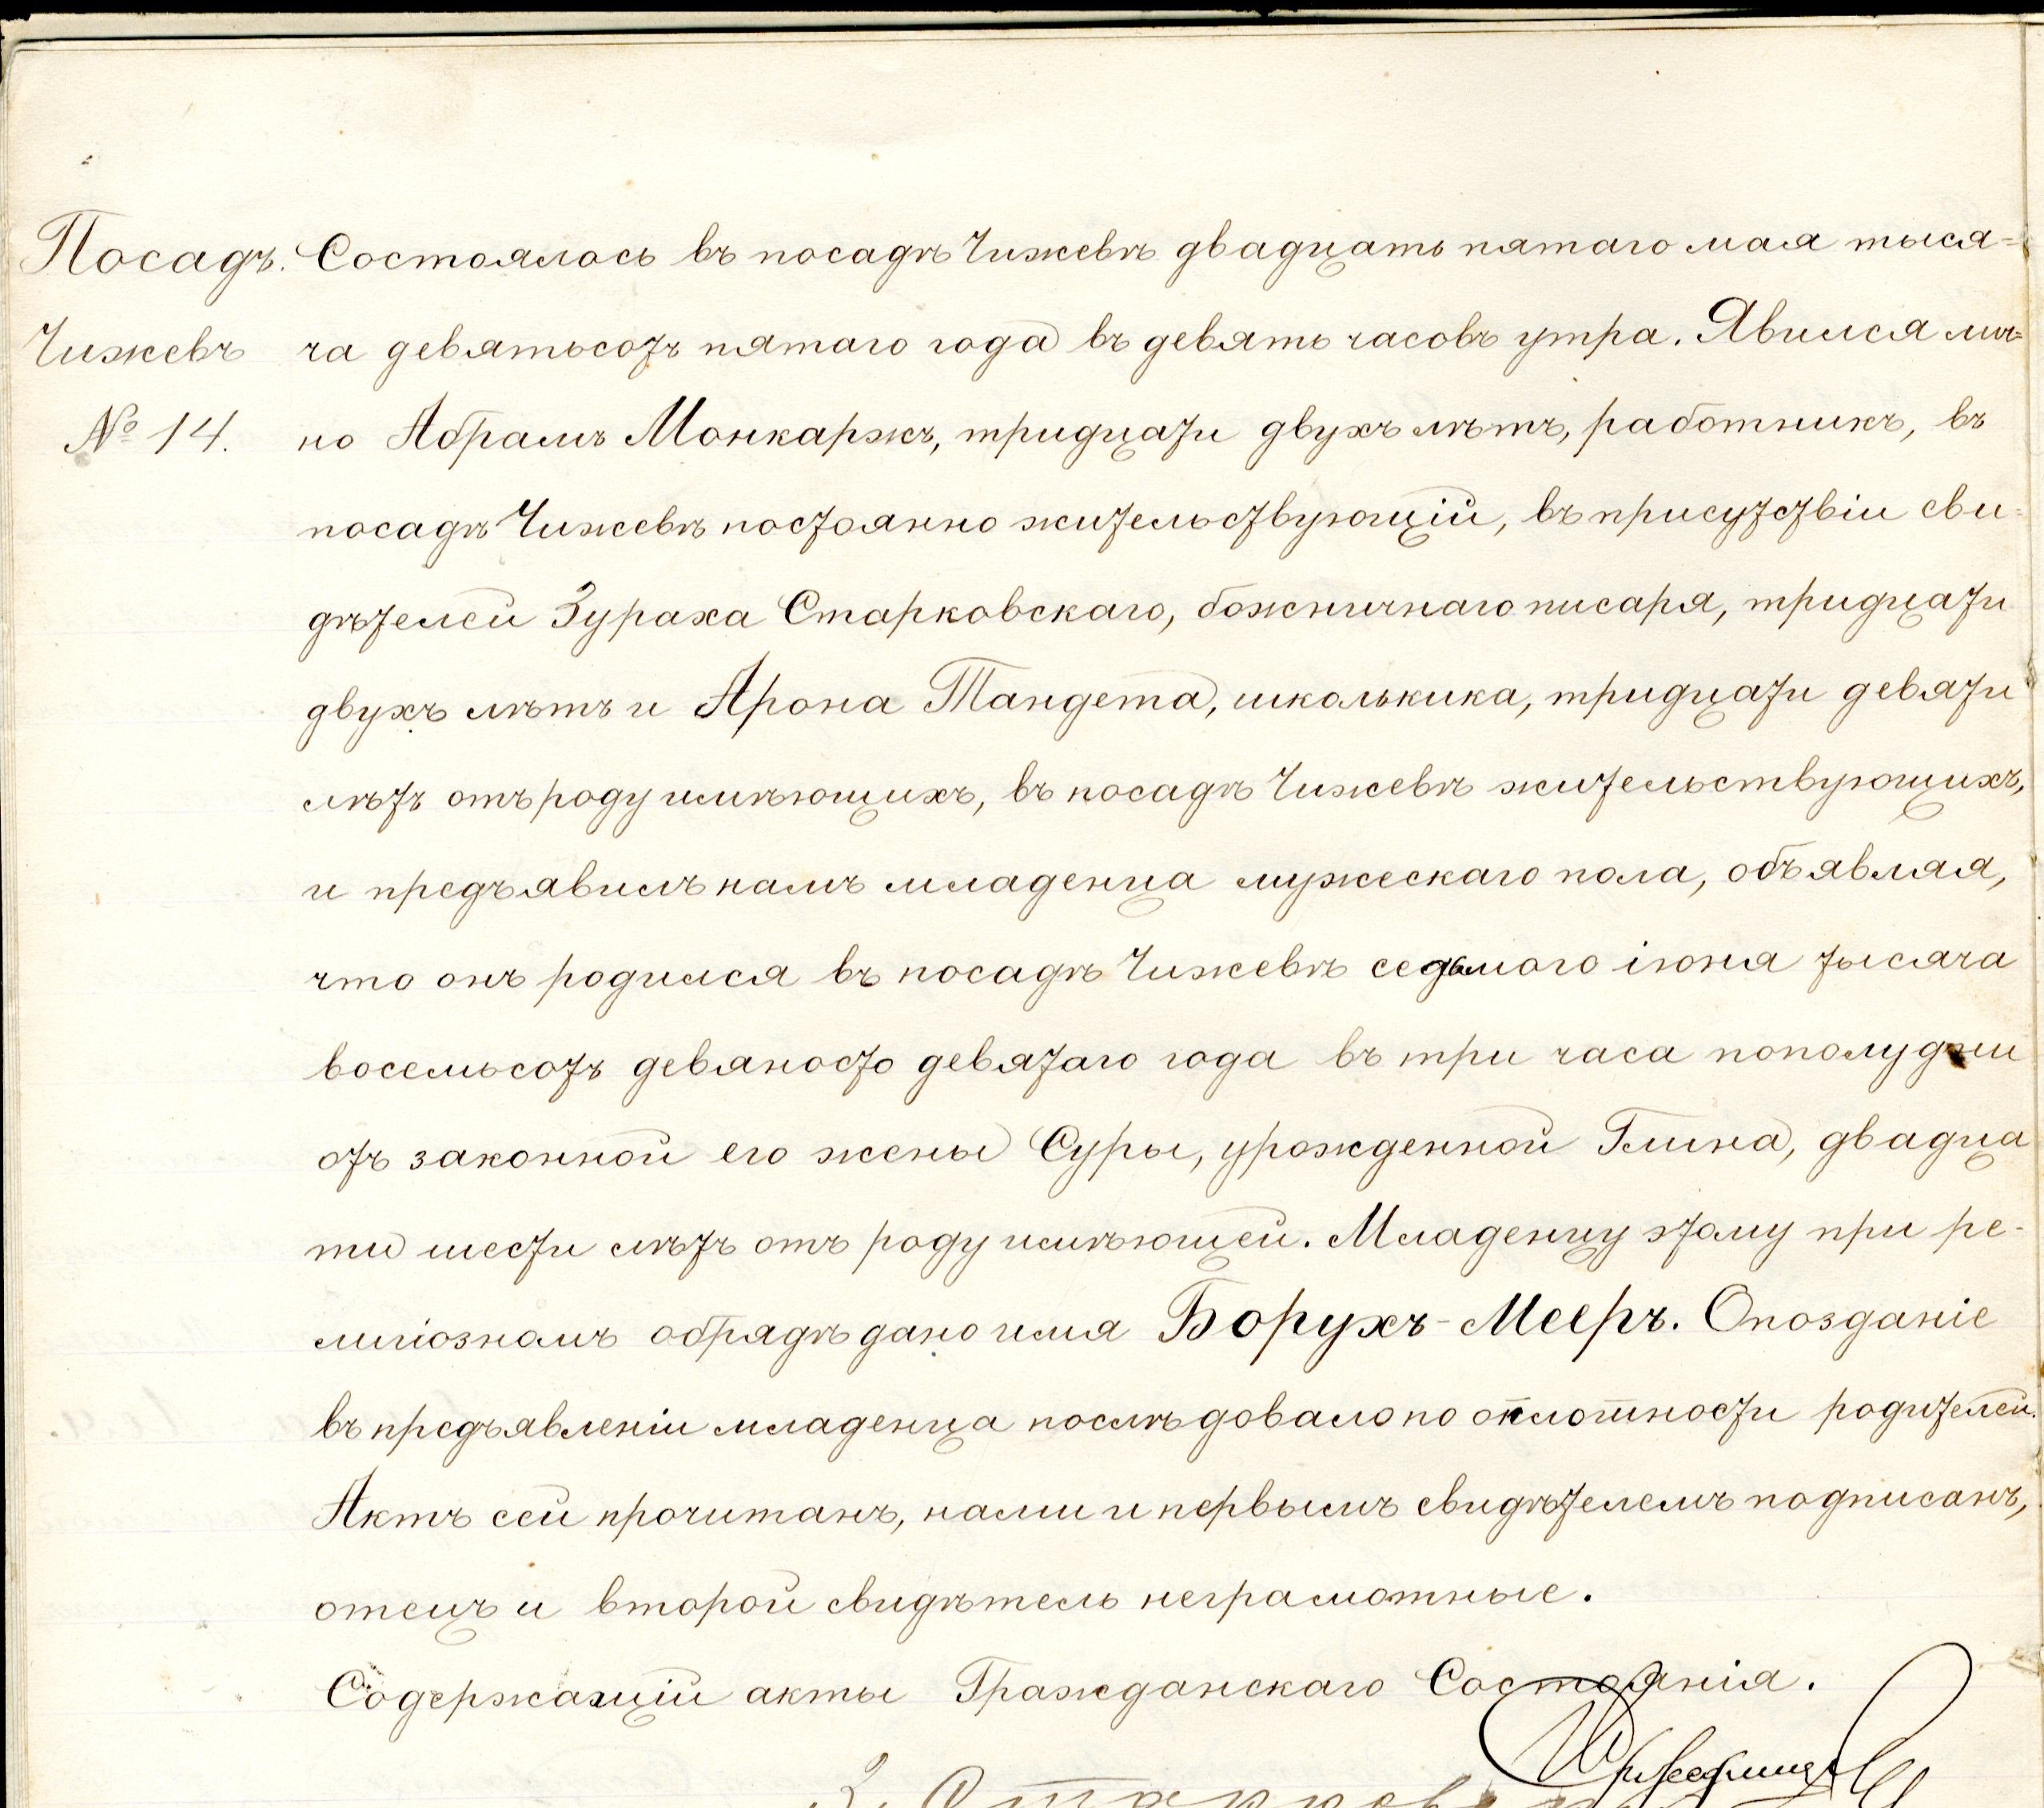 Посадъ. Состоялось въ посадѣ Чижевѣ двадцать пятаго мая тыся=
Чижевъ ча девятьсотъ пятаго года въ девять часовъ утра. Явился лич=
№ 14. но Абрамъ Монкаржъ, тридцати двухъ лѣтъ, работникъ, въ
посадѣ Чижевѣ постоянно жительствующій, въ присутствіи сви-
дѣтелей Зураха Старковскаго, божничнаго писаря, тридцати
двухъ лѣтъ и Арона Тандета, школьника, тридцати девяти
лѣтъ отъ роду имѣющихъ, въ посадѣ Чижевѣ жительствующихъ,
и предъявилъ намъ младенца мужескаго пола, объявляя,
что онъ родился въ посадѣ Чижевѣ седьмого іюня тысяча
восемьсотъ девяносто девятаго года въ три часа пополудни
отъ законной его жены Суры, урожденной Глина, двадца
ти шести лѣтъ отъ роду имѣющей. Младенцу этому при ре-
лигіозномъ обрядѣ дано имя Борухъ-Мееръ. Опозданіе
въ предъявленіи младенца послѣдовало по оплотности родителей.
Актъ сей прочитанъ, нами и первымъ свидѣтелемъ подписанъ,
отецъ и второй свидѣтель неграмотные.
Содержащій акты Гражданскаго Состоянія.
З.